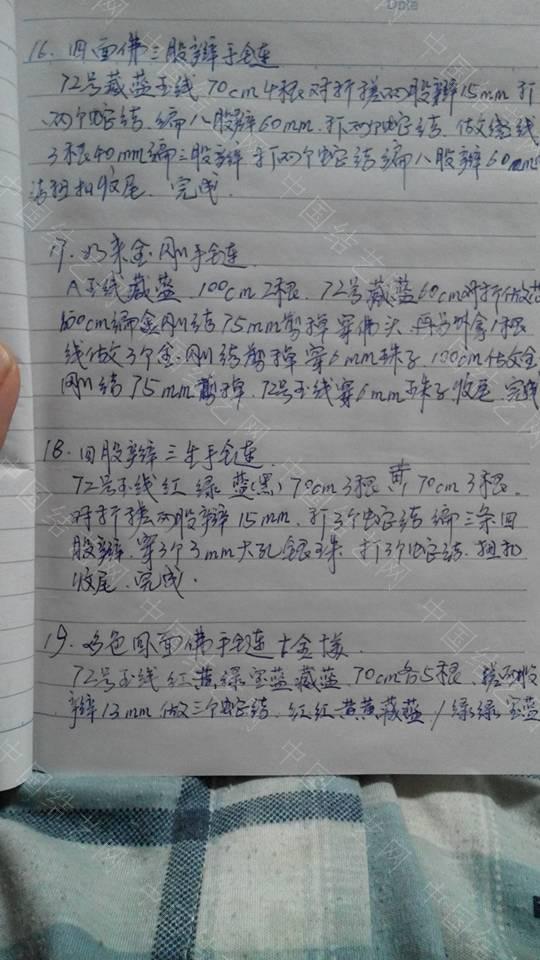 Date
16. 四面佛三股辫手链
72号藏蓝玉线 70cm 4根对折搓两股辫15mm打
两个蛇结. 编八股辫60mm. 打两个蛇结. 做绕线
3根40mm编三股辫 打两个蛇结编八股辫60mm
结扭扣收尾. 完成.
17. 如来金刚手链
A玉线藏蓝 100cm 2根. 72号藏蓝60cm对折做芯
100cm编金刚结75mm剪掉穿佛头. 再另外拿1根
线做3个金刚结剪掉穿6mm珠子 100cm做金
刚结75mm剪掉. 72号玉线穿6mm珠子收尾. 完成
18. 四股辫三生手链
72号玉线红 绿 蓝(黑) 70cm 3根 黄 70cm 3根.
对折搓两股辫15mm. 打3个蛇结 编三条四
股辫. 穿3个3mm大孔银珠. 打3个蛇结. 扭扣
收尾. 完成.
19. 四面佛手链
72号玉线 红黄绿宝蓝藏蓝 70cm各5根. 搓两股
辫13mm 做三个蛇结. 红红黄黄藏蓝/绿绿宝蓝
中国结艺网